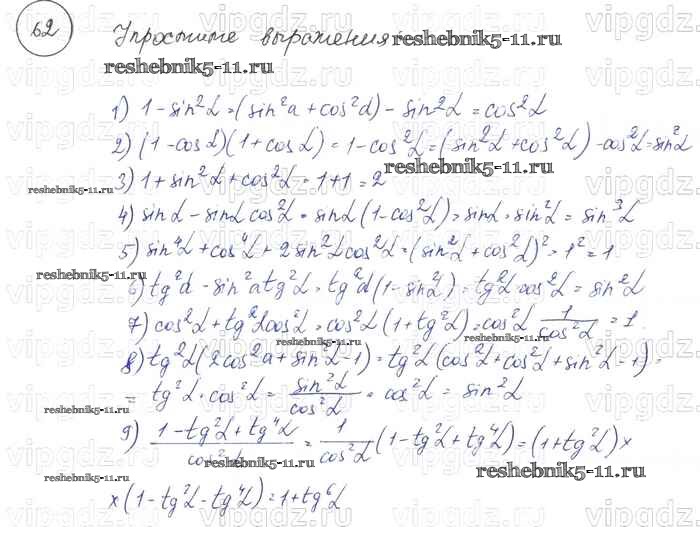 62
Упростите выражения reshebnik5-11.ru
reshebnik5-11.ru
1) 1-sin²α=(sin²a+cos²α)-sin²α=cos²α
2) (1-cosα)(1+cosα)=1-cos²α=(sin²α+cos²α)-cos²α=sin²α
reshebnik5-11.ru
3) 1+sin²α+cos²α=1+1=2
reshebnik5-11.ru
4) sinα-sinαcos²α=sinα(1-cos²α)=sinα·sin²α=sin³α
5) sin⁴α+cos⁴α+2sin²αcos²α=(sin²α+cos²α)²=1²=1
reshebnik5-11.ru
6) tg²α-sin²αtg²α=tg²α(1-sin²α)=tg²α·cos²α=sin²α
7) cos²α+tg²αcos²α=cos²α(1+tg²α)=cos²α 1/cos²α=1.
reshebnik5-11.ru reshebnik5-11.ru
8) tg²α(2cos²a+sin²α-1)=tg²α(cos²α+cos²α+sin²α-1)=
=tg²α·cos²α=sin²α/cos²α·cos²α=sin²α
reshebnik5-11.ru
9) (1-tg²α+tg⁴α)/cos²α=1/cos²α(1-tg²α+tg⁴α)=(1+tg²α)×
reshebnik5-11.ru reshebnik5-11.ru
reshebnik5-11.ru
×(1-tg²α-tg⁴α)=1+tg⁶α
vipgdz.ru